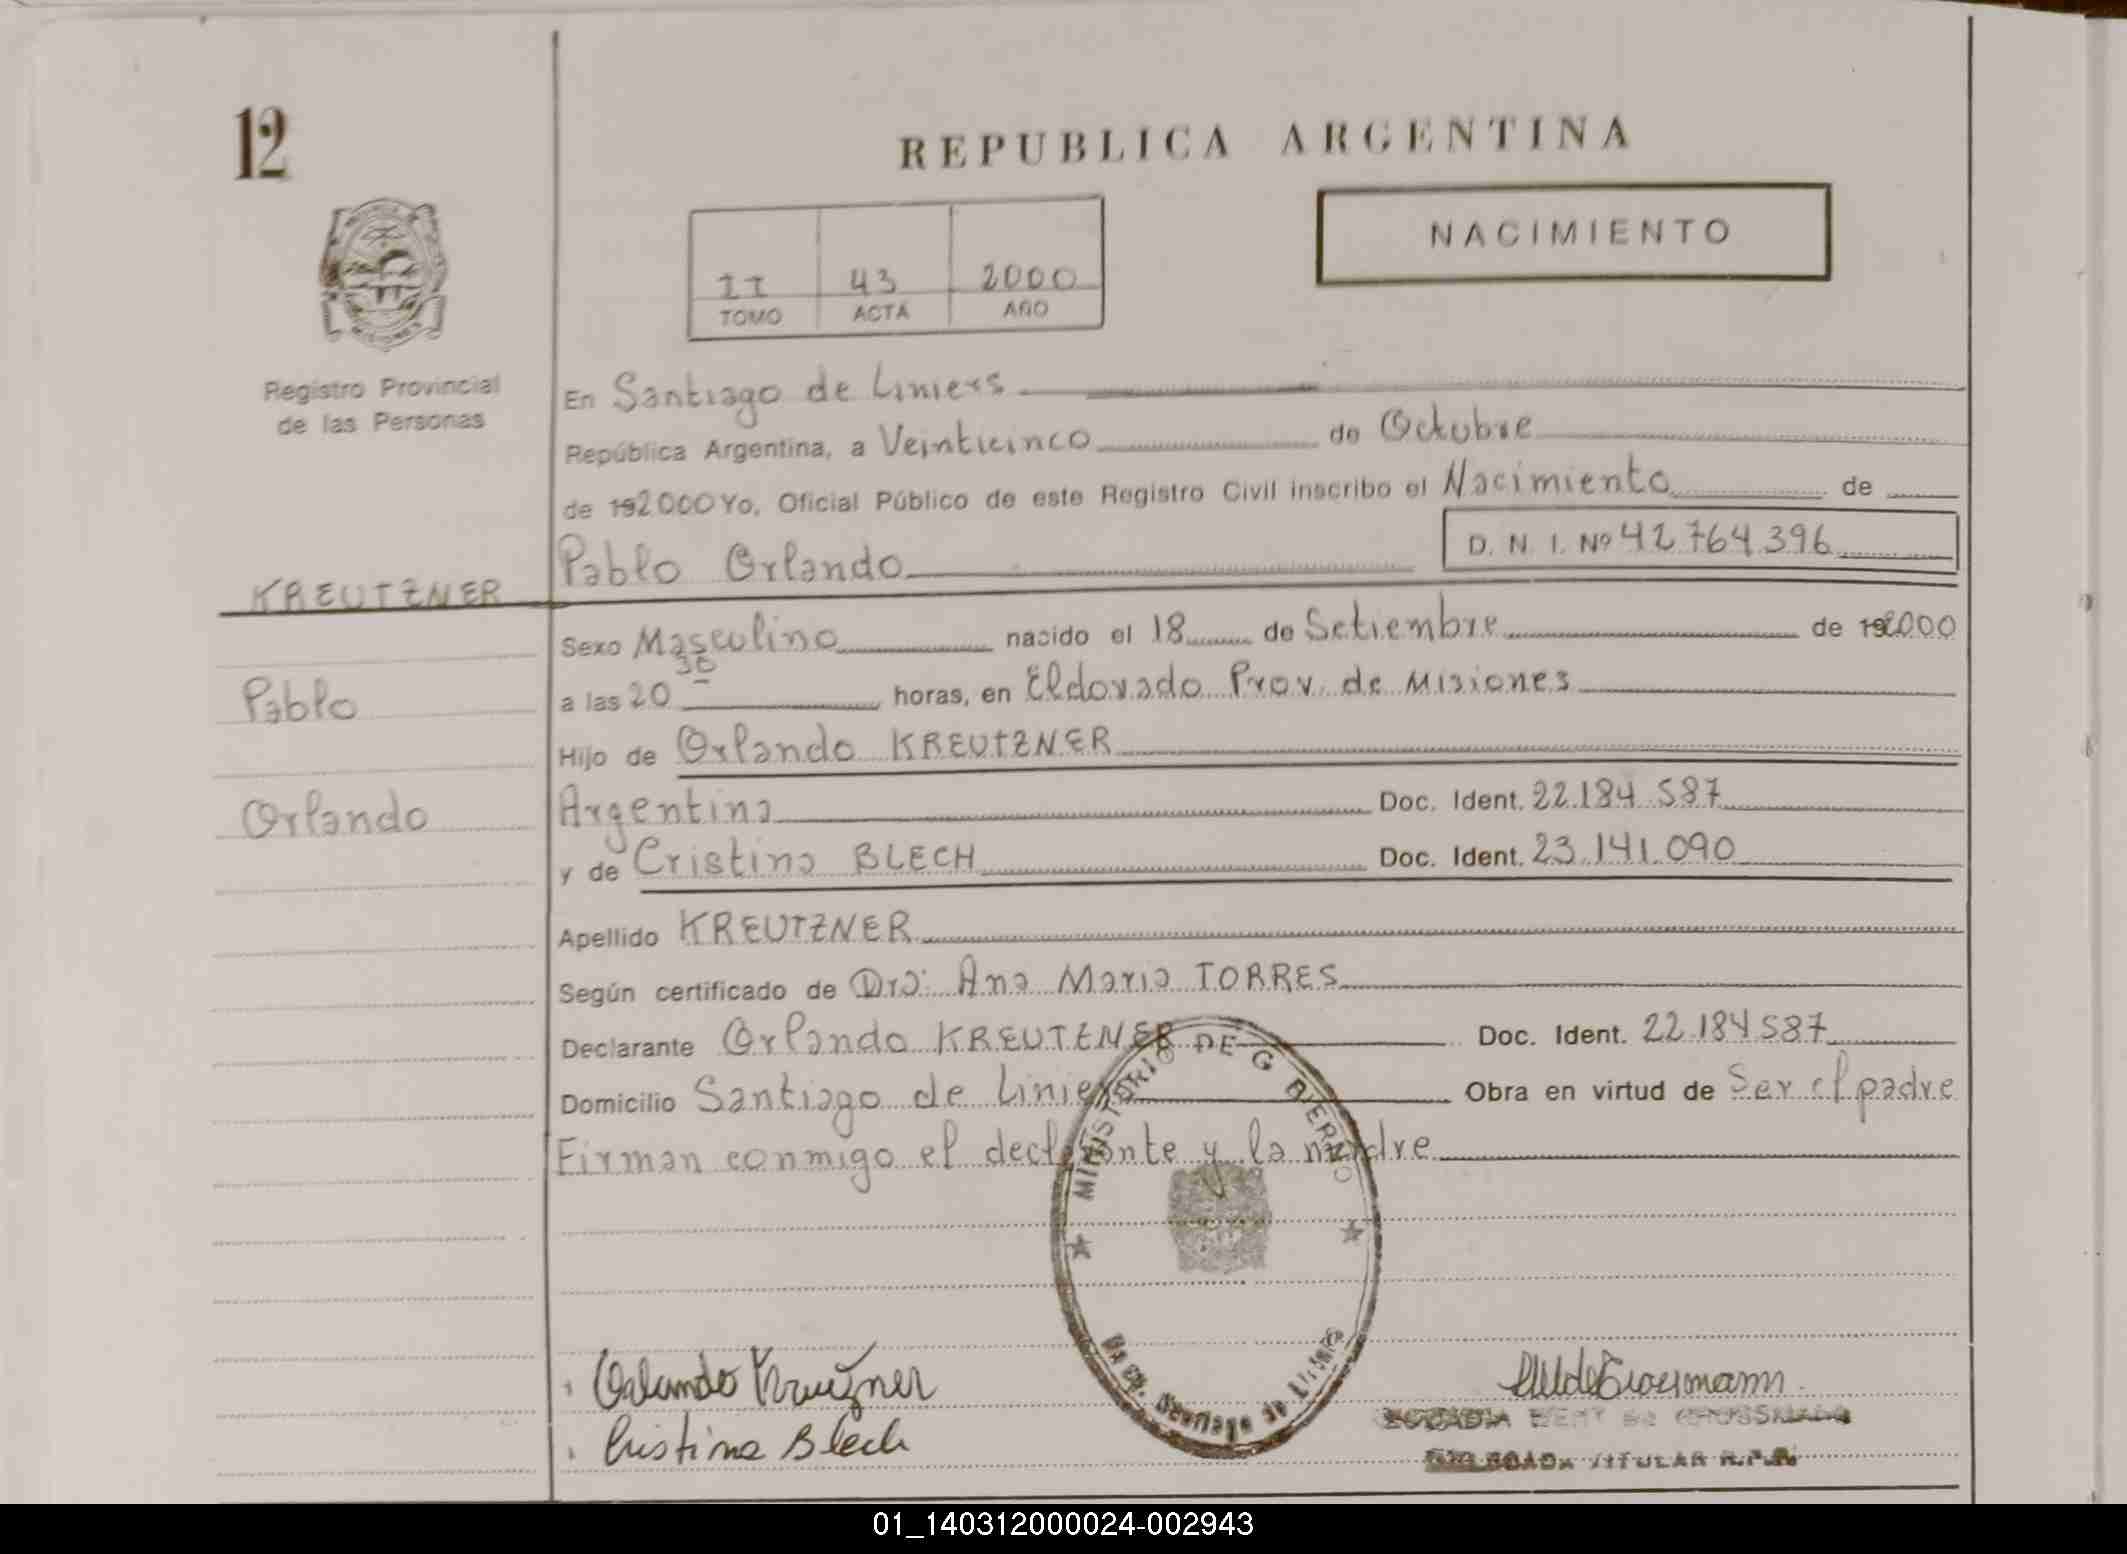 12
REPUBLICA ARGENTINA
NACIMIENTO
II 43 2000
TOMO ACTA AÑO
Registro Provincial
de las Personas
En Santiago de Liniers
República Argentina, a Veinticinco de Octubre
de 192000 Yo, Oficial Público de este Registro Civil inscribo el Nacimiento de
Pablo Orlando D. N. I. Nº 42 764 396
KREUTZNER
Sexo Masculino nacido el 18 de Setiembre de 192000
Pablo
a las 20 30 horas, en Eldorado Prov. de Misiones
Hijo de Orlando KREUTZNER
Orlando
Argentina Doc. Ident. 22.184.587
y de Cristina BLECH Doc. Ident. 23.141.090
Apellido KREUTZNER
Según certificado de Dra: Ana Maria TORRES
Declarante Orlando KREUTZNER Doc. Ident. 22.184.587
Domicilio Santiago de Liniers Obra en virtud de Ser el padre
Firman conmigo el declarante y la madre
MINISTORIO DE G BIERNO
Santiago de Liniers
Orlando Kreuzner
Cristina Blech
TITULAR R.P.P.
01_140312000024-002943